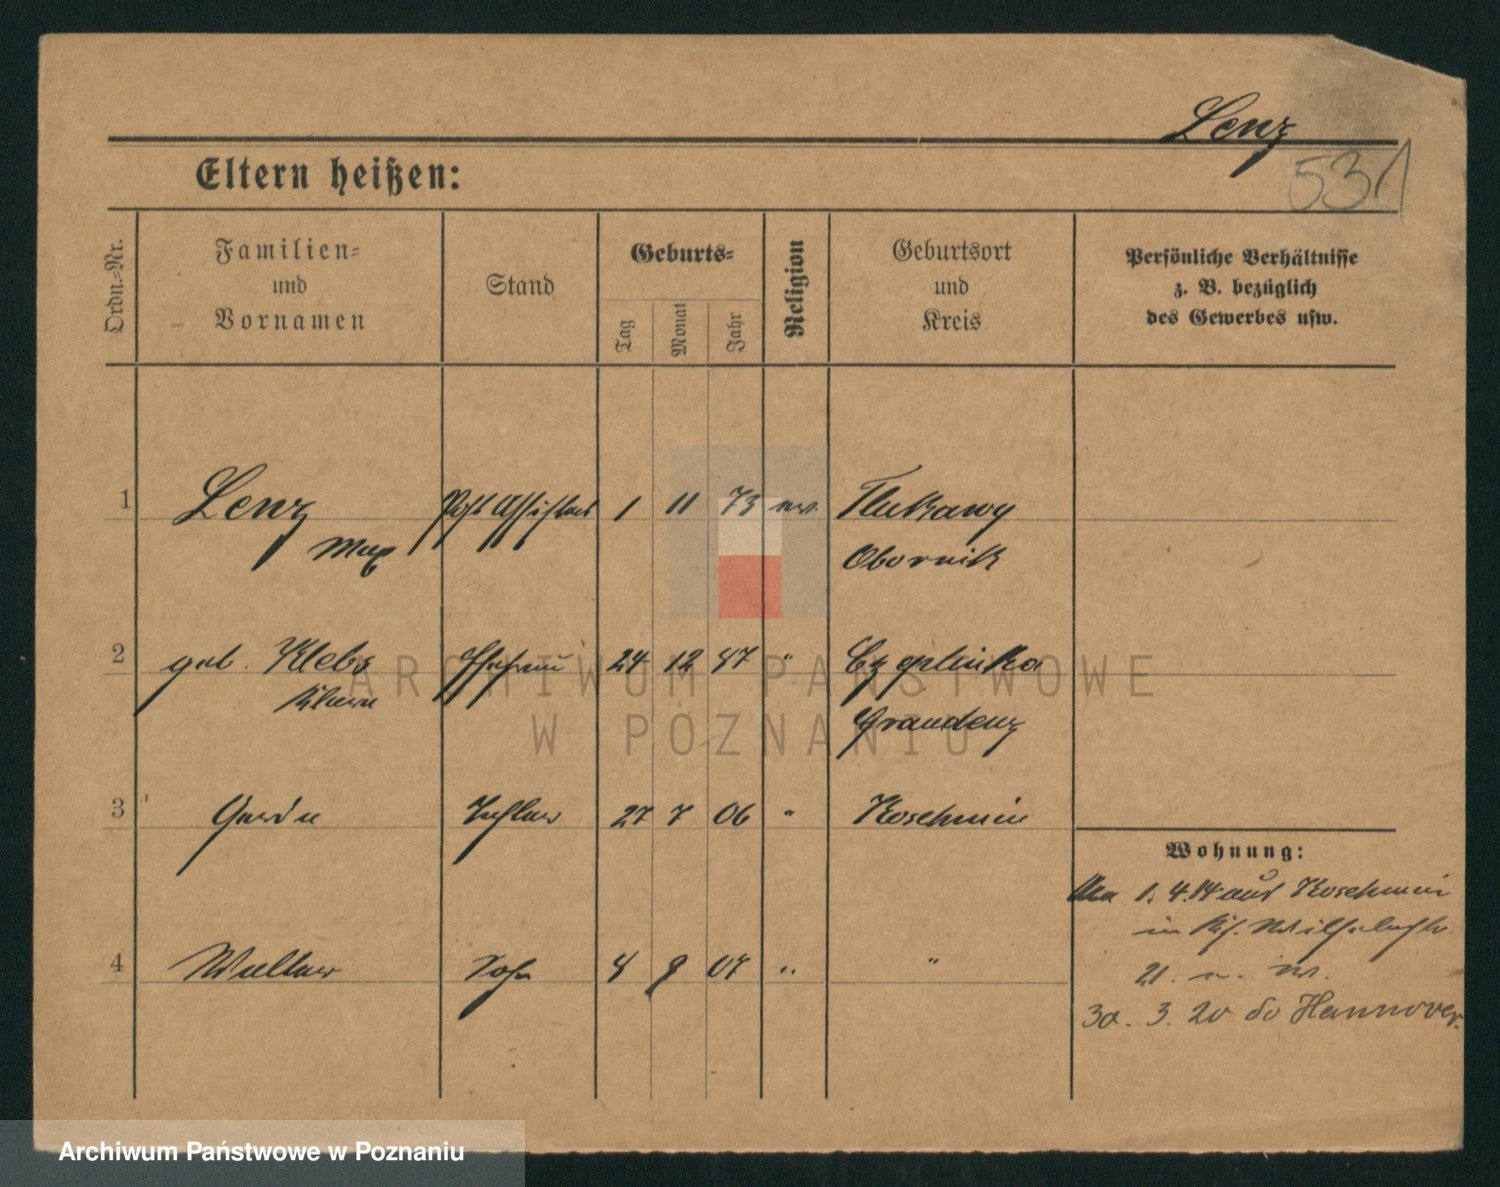 Lenz
531
Eltern heißen:
Ordn.-Nr.
Familien-
und
Vornamen
Stand
Geburts-
Tag
Monat
Jahr
Religion
Geburtsort
und
Kreis
Persönliche Verhältnisse
z. B. bezüglich
des Gewerbes usw.
1 Lenz Post Assistent 1 11 73 ev. Tlukawy
Max Obornik
2 geb. Klebs Ehefrau 24 12 87 " Czeplinka
Graudenz
3 Gerda Tochter 27 7 06 " Koschmin
4 Walter Sohn 8 9 07 " "
Wohnung:
1. 4. 14 aus Koschmin
in
21.
30. 3. 20 do Hannover.
ARCHIWUM PAŃSTWOWE
W POZNANIU
Archiwum Państwowe w Poznaniu